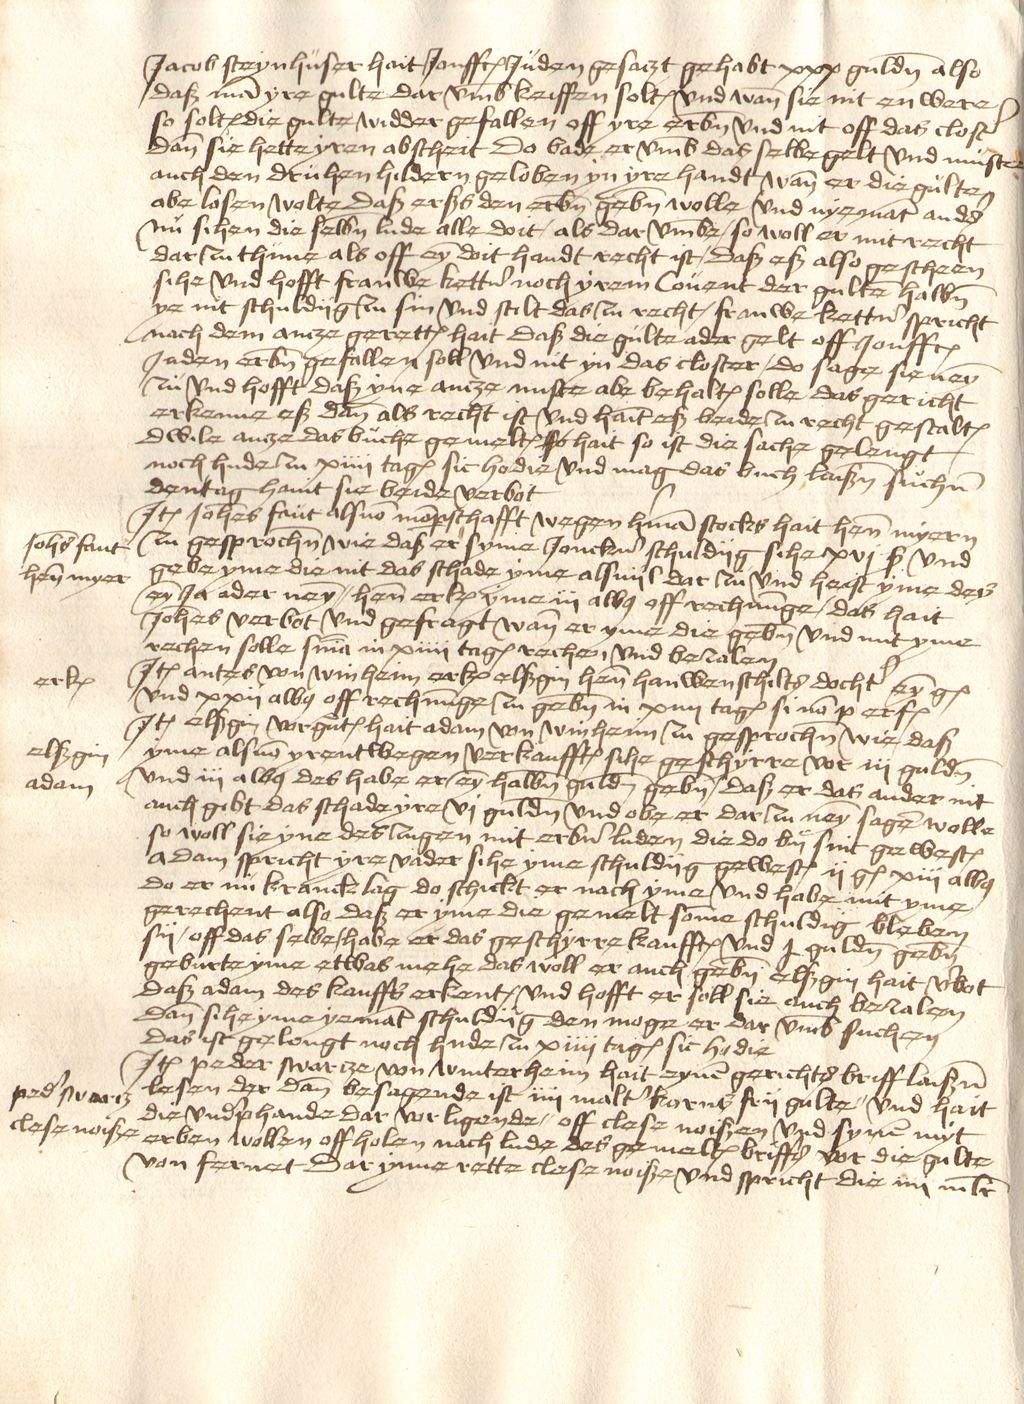 Jacob steynhuser hait Jonffr Juden gesaczt gehabt xxx guldn also
daß man yre gulte dar vmb keiffen solt vnd wan sie nit en were
so solt die gulte widder gefallen off yre erbn vnd nit off das closter
dan sie hette yren abscheit Do bade er vmb das selbe gelt vnd muiste
auch den druhenhildern geloben yn yre handt wan er die gulten
abe losen wolte daß erßs den erbn gebn wolle vnd nyemant anders
nu sihen die selbn lude alle doit als dar vmbe so woll er mit recht
dar zu thune als off ey doit handt recht ist daß eß also gescheen
sihe vnd hofft frauwe kettern noch yrem Covent der gulte halbn
ye nit schuldiig zu sin vnd stilt das zu recht frauwe kettern spricht
nach dem ancze gerett hait daß die gulte ader gelt off Jonffr
Juden erbn gefallen soll vnd nit yn das closter do sage sie neyn
zu vnd hofft daß yne ancze muste abe behalt solle das gericht
erkenne eß dan als recht ist vnd hant eß beide zu recht gestalt
dwile ancze das buche gemelt hait so ist die sache gelengt
noch hude zu xiiii tag sic hodie vnd mag das buch laißn suchn
den tag hant sie beide verbot
Jt Johes faut als von mompschafft wegen hman stocks hait hen myern
zu gesprochn wie daß er syme Jonckern schuldiig sihe xvj ß vnd
gebe yme die nit das schade yme alsuil dar zu vnd heist yme des
ey Ja ader neyn hen erk yme iii albq off rechnunge das hait
Johes verbot vnd gefragt wan er yme die gebn vnd mit yme
rechen solle snia in xiiii tag rechen vnd bezalen
Jt antes von winheim erk elßgin hen hanwenschilts docht ey g
vnd xxii albq off rechnunge zu gebn in xiiii tag si non p erf
Jt elßgin vorgut hait adam von winheim zu gesprochn wie daß
yme als von yrentwegen verkaufft sihe geschyrre vor iii guldn
vnd iii albq des habe er ey halbn guldn gebn daß er das ander nit
auch gibt das schade yre vi guldn vnd obe er dar zu neyn sagen wolle
so woll sie yne des zugen mit erbern luden die do by sint gewest
Adam spricht yre vader sihe yme schuldiig gewest ii g xiii albq
do er nu kranck lag do schickt er nach yme vnd habe mit yme
gerechent also daß er yme die gemelt some schuldig bleben
sy off das selbe habe er das geschyrre kaufft vnd j guldn gebn
geburte yme ettwas mehe das woll er auch gebn elßgin hait verbot
daß adam des kauffs erkent vnd hofft er soll sie auch bezalen
dan sihe yme yemant schuldiig den moge er dar vmb suchen
das ist gelengt noch hude zu xiiii tag sic hodie
Jt peder swarcze von winterheim hait eynen gerichts briff laißn
lesen der dan besagende ist iiii malter korns frii gulte vnd hait
die vnderphande dar vor ligende off clese noißen vnd synen myt
erben wollen off holen nach lude des gemelt briffs vor die gulte
von fernet Dar ynne rette clese noiße vnd spricht die iiii mlr
Johes faut
hen myer
erk
elßgin
adam
peder swartz
clese noiße